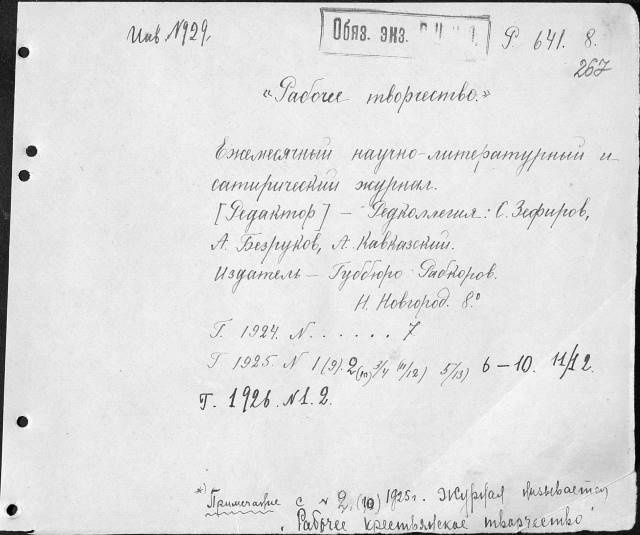 Инв №929.
Обяз. экз.
Р 641. 8.
267
«Рабочее творчество.»
Ежемесячный научно-литературный и
сатирический журнал.
[Редактор] — Редколлегия: С. Зефиров,
А. Безруков, А. Кавказский.
Издатель — Губбюро Рабкоров.
Н. Новгород. 8.º
Г. 1924. N . . . . . . 7
Г 1925. N 1(9). 2(10) 3/4 (11/12) 5/13) 6-10. 11/12.
Г. 1926. N 1. 2.
*) Примечание с N 2 (10) 1925 г. Журнал называется
"Рабочее крестьянское творчество"